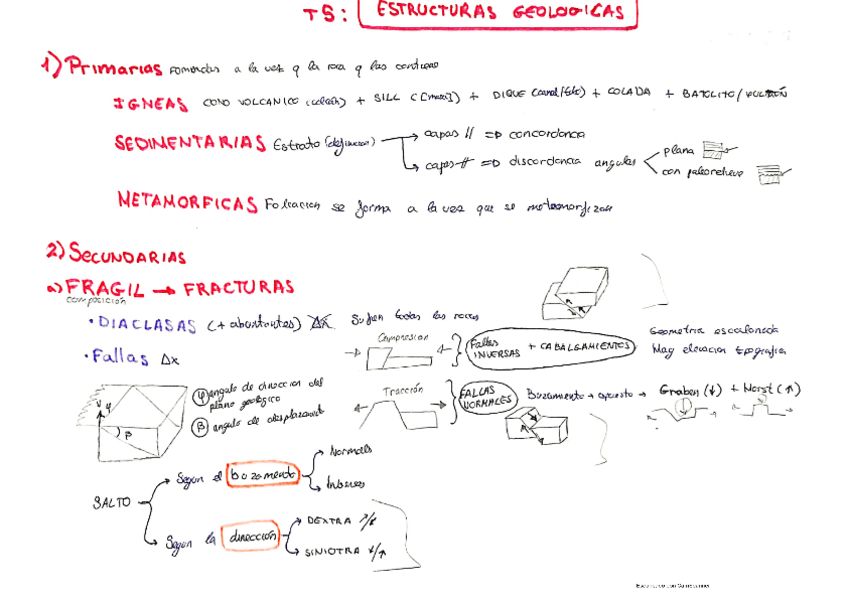 T5: ESTRUCTURAS GEOLOGICAS
1) Primarias Formadas a la vez q la roca q las contiene
IGNEAS CONO VOLCANICO + SILL + DIQUE + COLADA + BATOLITO/
SEDIMENTARIAS Estrato (definicion) → capas // => concordancia
capas => discordancia angular
plana
con paleorelieve
METAMORFICAS Foliacion se forma a la vez que se
2) SECUNDARIAS
a) FRAGIL → FRACTURAS
composición
• DIACLASAS (+ abundantes) Δx Sufren todas las rocas
Compresion
Fallas INVERSAS + CABALGAMIENTOS
Geometria escalonada
Hay elevacion topografica
• Fallas Δx
φ angulo de direccion del
plano geológico
β angulo de desplazamiento
φ
β
Tracción
FALLAS NORMALES
Buzamiento → opuesto → Graben (↓) + Horst (↑)
SALTO
Segun el buzamiento
Normales
Inversas
Segun la dirección
DEXTRA
SINIOTRA
Escaneado con CamScanner